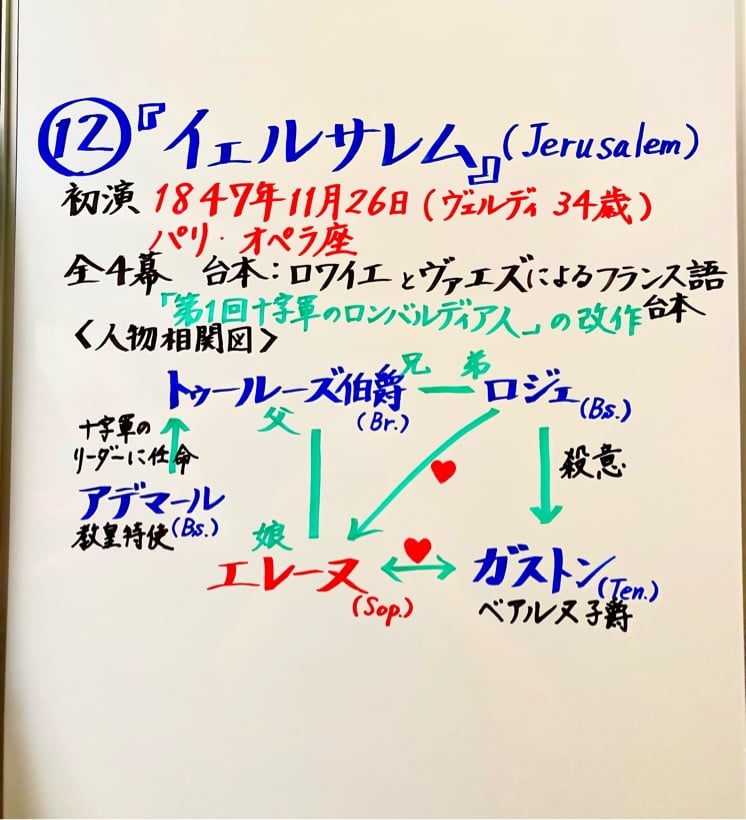 ⑫『イェルサレム』(Jerusalem)
初演 1847年11月26日(ヴェルディ 34歳)
パリ・オペラ座
全4幕 台本:ロワイエとヴァエズによるフランス語
台本
「第1回十字軍のロンバルディア人」の改作
<人物相関図>
兄 弟
トゥールーズ伯爵(Br.) ロジェ(Bs.)
父
十字軍の
リーダーに任命
殺意
アデマール(Bs.)
教皇特使
娘
エレーヌ(Sop.) ガストン(Ten.)
ベアルヌ子爵